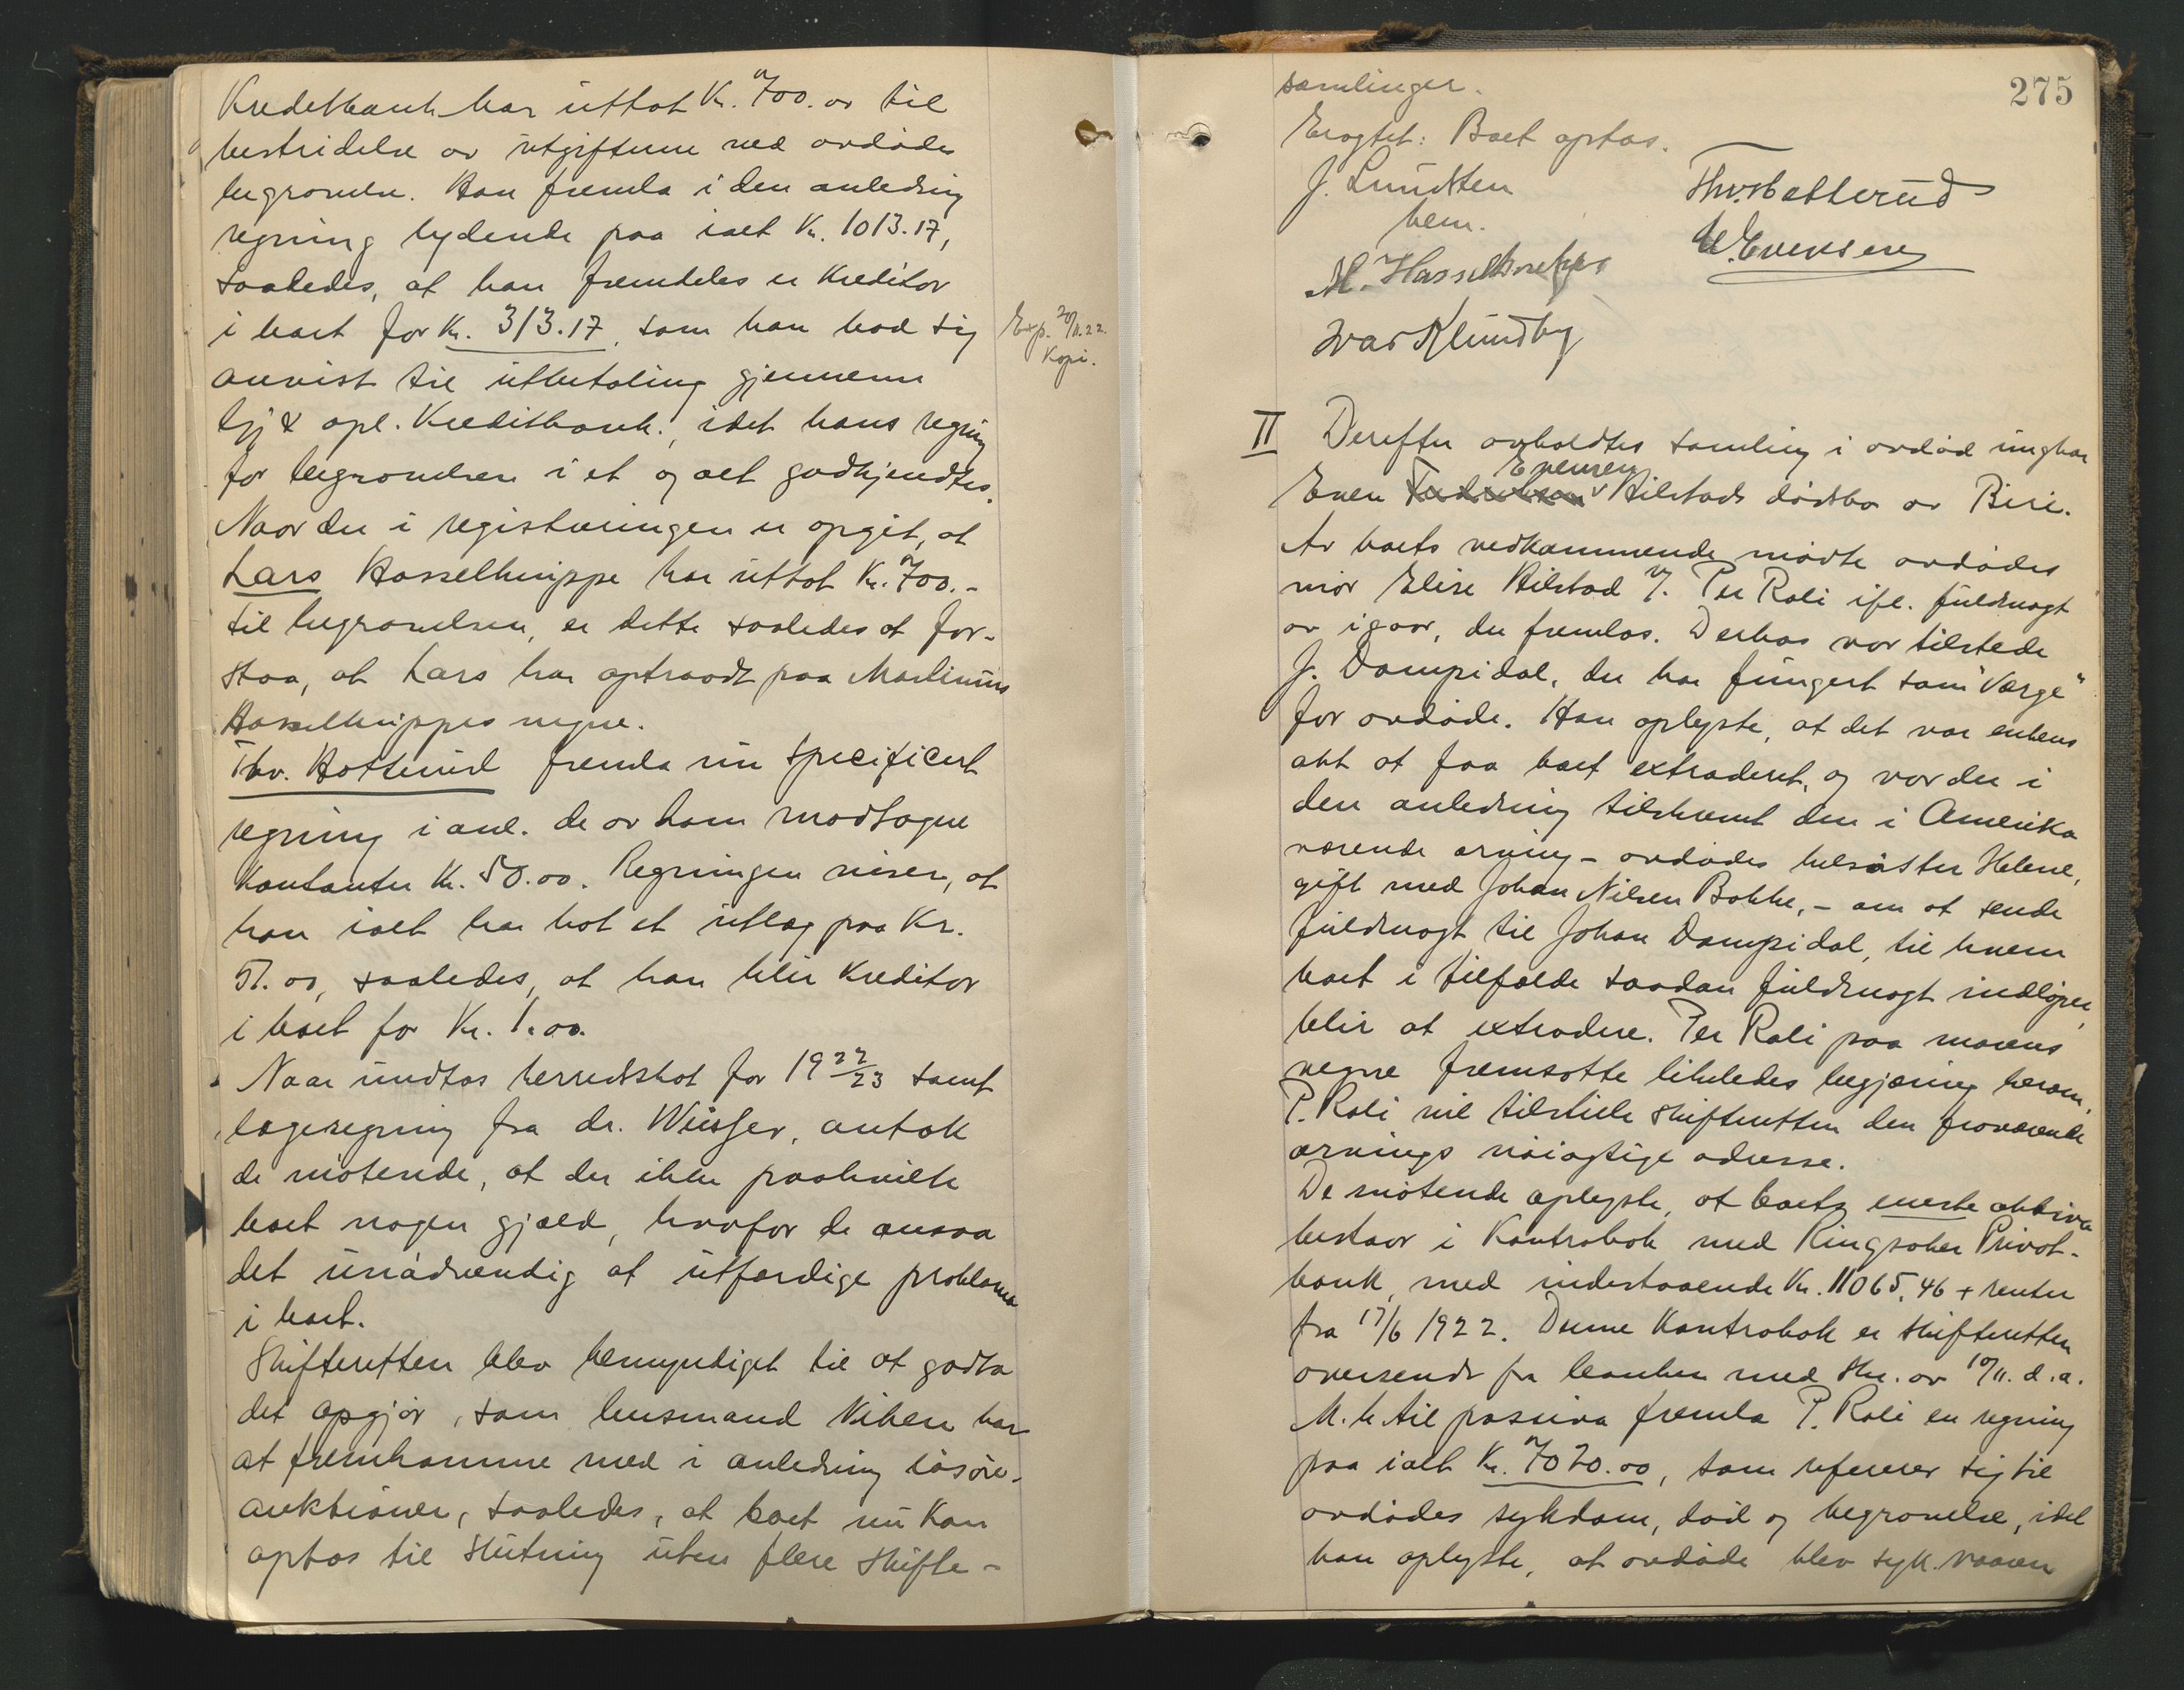 Kreditbank har uttat Kr. 700.00 til
bestridelse av utgifterne ved avdødes
begravelse. Han fremla i den anledning
regning lydende paa ialt Kr. 1013.17,
saaledes, at han fremdeles er kreditor
i boet for Kr. 313.17, som han bad sig
anvist til utbetaling gjennem
Gj & opl. Kreditbank, idet hans regning
for begravelsen i et og alt godkjendtes.
Naar der i registreringen er opgit, at
Lars Hasselknippe har uttat Kr. 700.-
til begravelsen, er dette saaledes at for-
staa, at Lars har optraadt paa Martinius
Hasselknippes vegne.
Thv. Hotterud fremla nu specificert
regning i anl. de av ham modtagne
kontanter Kr. 50.00. Regningen viser, at
han ialt har hat et utlæg paa Kr.
51.00, saaledes, at han blir kreditor
i boet for Kr. 1.00.
Naar undtas herredskat for 1922/23 samt
lægeregning fra dr. , antok
de møtende, at der ikke paahvilte
boet nogen gjæld, hvorfor de ansaa
det unødvendig at utfærdige proklama
i boet.
Skifteretten blev bemyndiget til at godta
det opgjør, som lensmand Viken har
at fremkomme med i anledning løsøre-
auktionen, saaledes, at boet nu kan
optas til slutning uten flere skifte-
Exp. 20/11.22.
Kopi.
275
samlinger.
Eragtet: Boet optas.
J. Lundsten
bem.
Thv. Hotterud
M. Hasselknippe
E. Evensen
Ivar Klundby
II Derefter avholdtes samling i avdød ungkar
Evensen
Even Hilstads dødsbo av Biri.
Av boets vedkommende møtte avdødes
mor Elise Hilstad v. Per Roli ifl. fuldmagt
av igaar, der fremlas. Derhos var tilstede
J. Dampidal, der har fungert som "Værge"
for avdøde. Han oplyste, at det var enkens
akt at faa boet extraderet, og var der i
den anledning tilskrevet den i Amerika
værende arving – avdødes helsøster Helene,
gift med Johan Nilsen Bakke, – om at sende
fuldmagt til Johan Dampidal, til hvem
boet i tilfælde saadan fuldmagt indløper,
blir at extradere. Per Roli paa morens
vegne fremsatte likeledes begjæring herom.
P. Roli vil tilstille skifteretten den fraværende
arvings nøiagtige adresse.
De møtende oplyste, at boets eneste aktiva
bestaar i Kontrabok med Ringsaker Privat-
bank, med indestaaende Kr. 11065,46 + renter
fra 17/6 1922. Denne kontrabok er skifteretten
oversendt fra banken med skr. av 10/11. d.a.
M.h.til passiva fremla P. Roli en regning
paa ialt Kr. 7020.00, som refererer sig til
avdødes sykdom, død og begravelse, idet
han oplyste, at avdøde blev syk vaaren